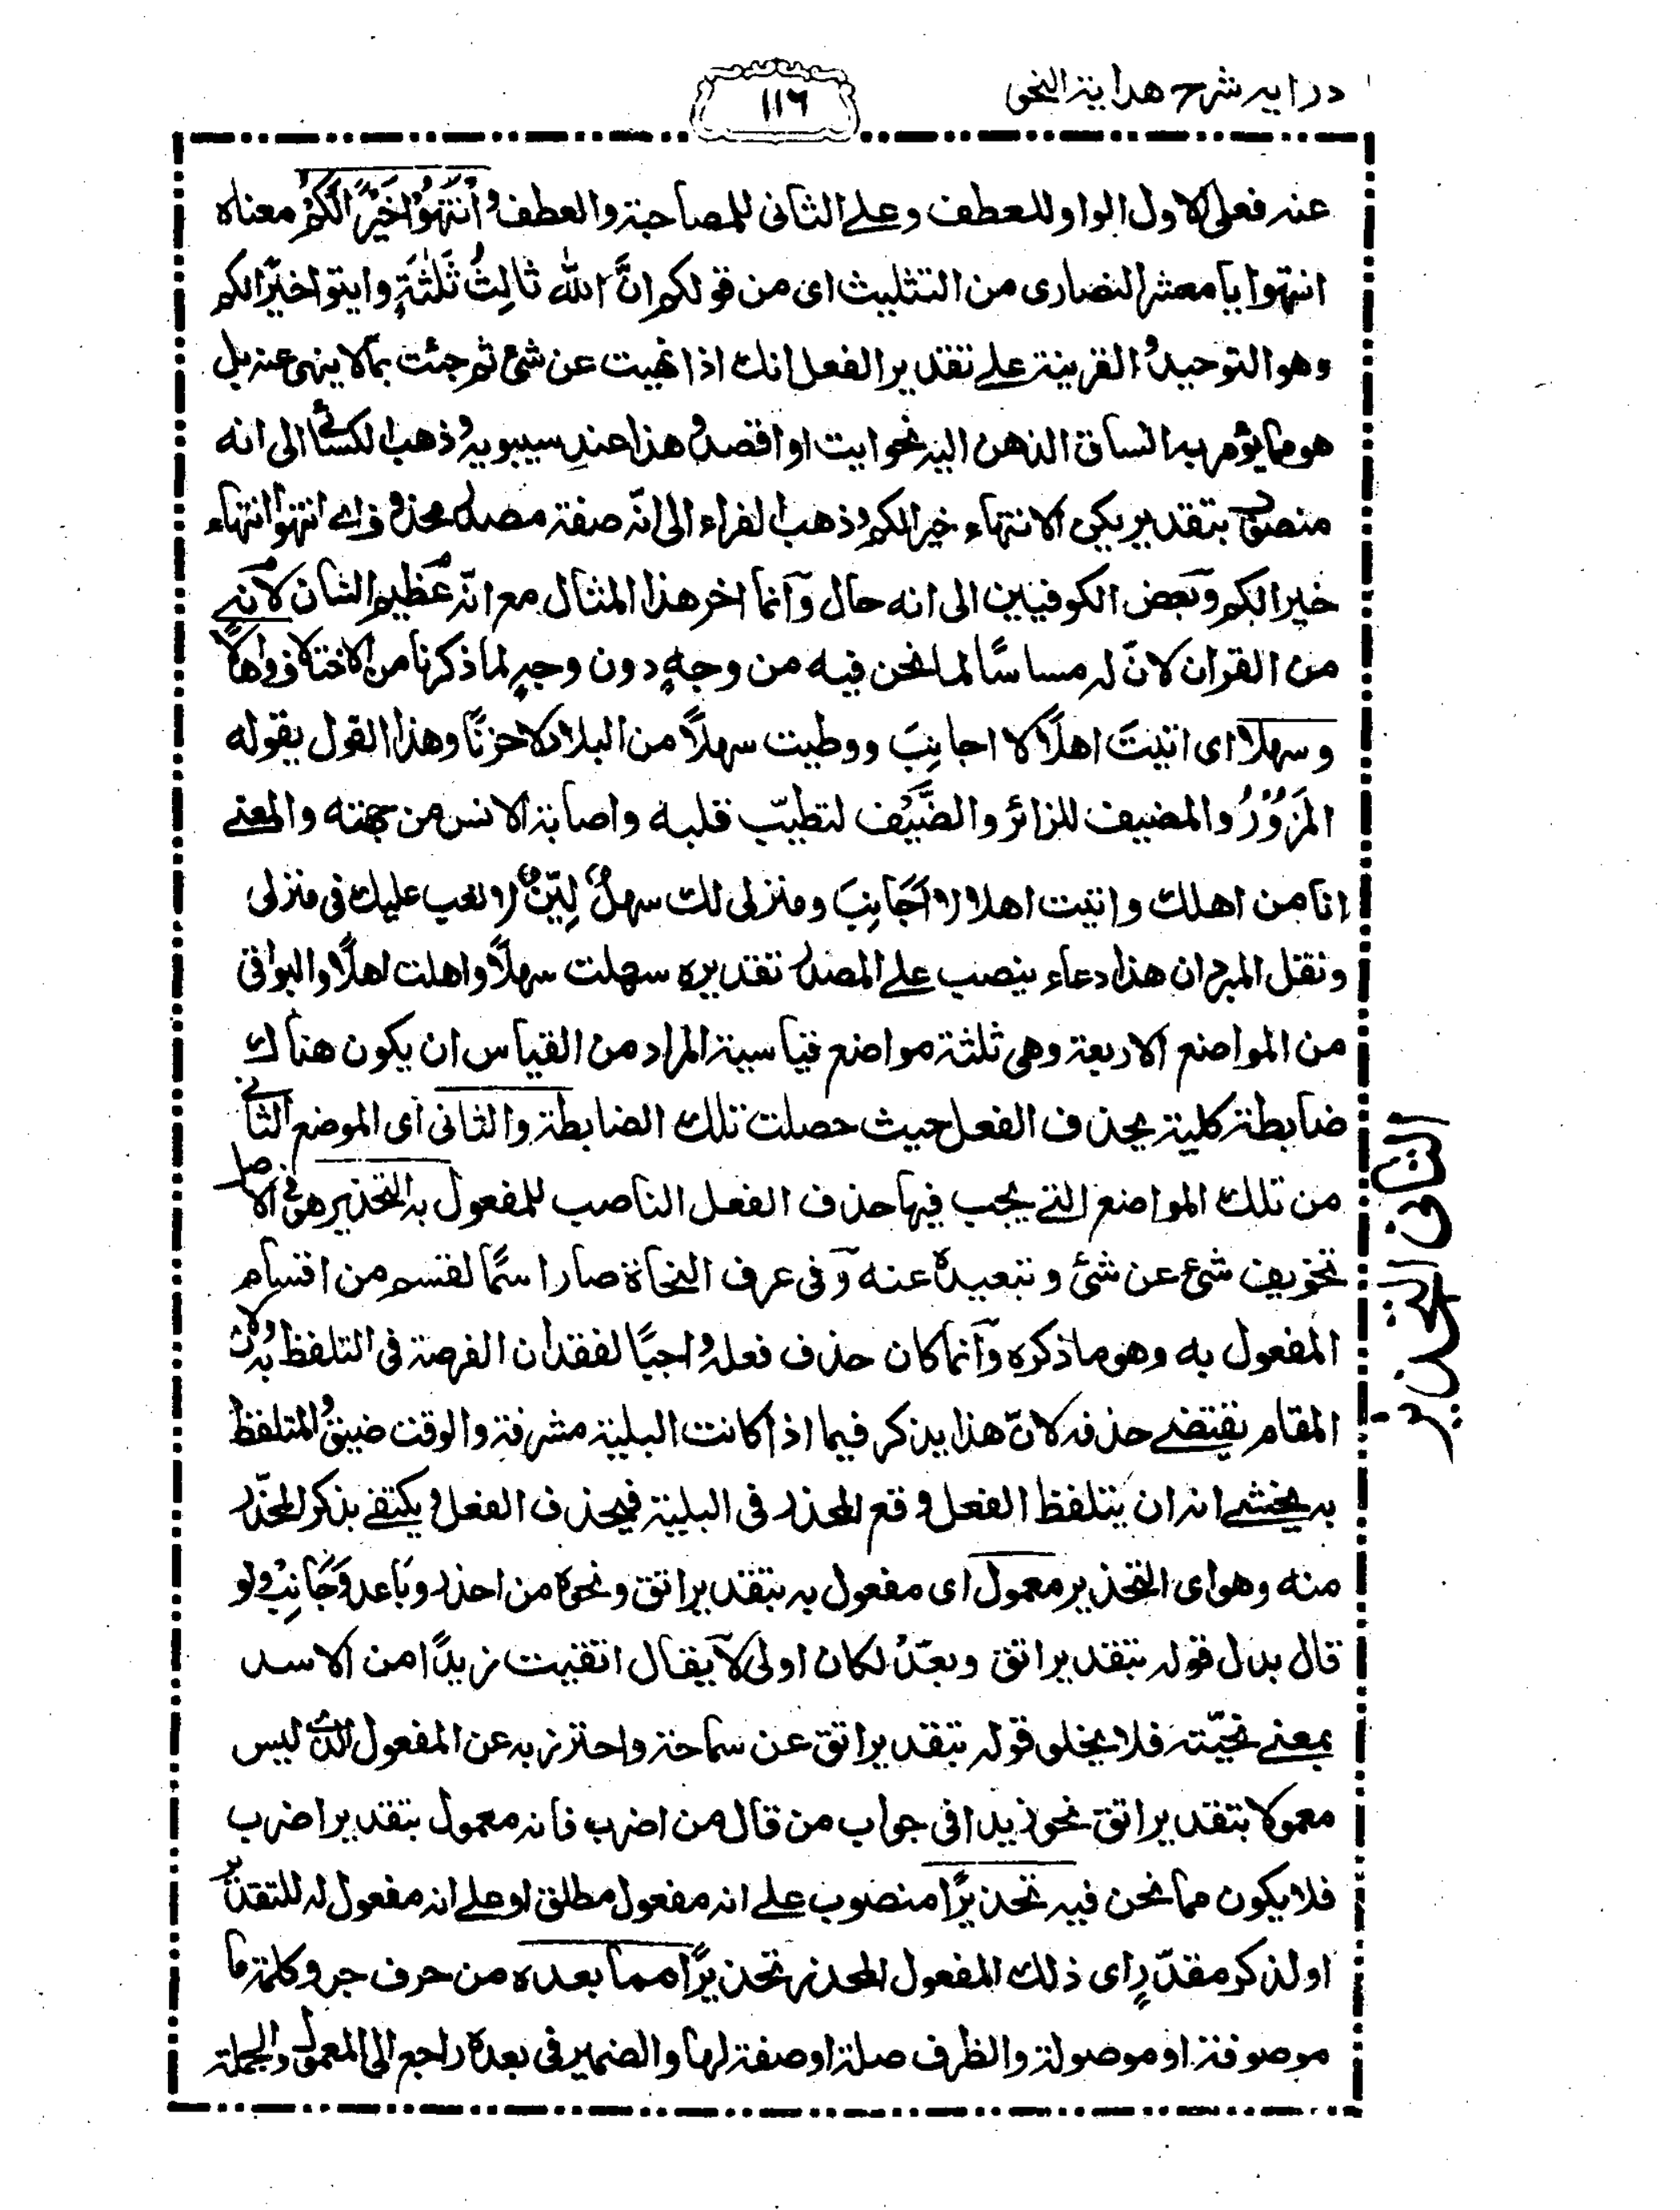 درایہ شرح ھدایۃ النحو
۱۱۶
عنہ فعلی الاول الواو للعطف وعلے الثانی للمصاحبۃ والعطف وَانْتَهُوْا خَيْرًا لَّكُمْ معناہ
انتہوا یا معشر النصاری من التثلیث ای من قولکم انَّ اللہ ثالِثُ ثَلٰثَۃٍ وایتوا خیرًا لکم
وھو التوحید والقرینۃ علے تقدیر الفعل انک اذا نھیت عن شئ ثم جئت بما لا ینہی عنہ بل
ھو مما یؤمر بہ انساق الذھن الیہ نحو ایت او اقصد وھذا عند سیبویہ وذھب الکسائی الی انہ
منصوب بتقدیر یکن الانتہاء خیرا لکم وذھب الفراء الی انّہ صفۃ مصدر محذوف ای انتہوا انتہاء
خیرا لکم وبعض الکوفیین الی انہ حال وانما اخر ھذا المثال مع انّہ عظیم الشان لانہ
من القرآن لانّ لہ مساسًا لما نحن فیہ من وجہٍ دون وجہٍ لما ذکرنا من الاختلاف واھلًا
وسہلا ای اتیتَ اھلًا لا اجانِبَ ووطیت سہلًا من البلاد لا حزنًا وھذا القول یقولہ
المَزُوْرُ والمضیف للزائر والضَّیْف لتطیّب قلبہ واصابۃ الانس من جہتہ والمعنے
انا من اھلک واتیت اھلا لا اَجَانِبَ ومنزلی لک سہلٌ لیّنٌ لا تعب علیک فی منزلی
ونقل المبرد ان ھذا دعاء ینصب علے المصدر تقدیرہ سہلت سہلًا واھلت اھلًا والبواقی
من المواضع الاربعۃ وھی ثلثۃ مواضع قیاسیۃ المراد من القیاس ان یکون ھناک
ضابطۃ کلیۃ بحذف الفعل حیث حصلت تلک الضابطۃ والثانی ای الموضع الثانی
من تلک المواضع التے یجب فیہا حذف الفعل الناصب للمفعول بہ التحذیر ھو فی الاصل
تخویف شئ عن شئ وتبعیدہ عنہ وفی عرف النحاۃ صار اسمًا لقسم من اقسام
المفعول بہ وھو ما ذکرہ وانما کان حذف فعلہ واجبًا لفقدان الفرصۃ فی التلفظ بہ ولان
المقام یقتضے حذفہ لانّ ھذا یذکر فیما اذا کانت البلیۃ مشرفۃ والوقت ضیق والمتلفظ
بہ یخشے انہ ان یتلفظ الفعل وقع المحذر فی البلیۃ فیحذف الفعل ویکتفے بذکر المحذّر
منہ وھو ای التحذیر معمول ای مفعول بہ بتقدیر اتق ونحوہ من احذر وبَاعد وجَانِبْ ولو
قال بدل قولہ بتقدیر اتق وبعّد لکان اولی لا یقال اتقیت زیدًا من الاسد
بمعنے نحّیتہ فلا یخلو قولہ بتقدیر اتق عن سماحۃ واحترز بہ عن المفعول الذی لیس
معمولا بتقدیر اتق نحو زیدا فی جواب من قال من اضرب فانہ معمول بتقدیر اضرب
فلا یکون مما نحن فیہ تحذیرًا منصوب علے انہ مفعول مطلق او علے انہ مفعول لہ للتقدیر
او لذکر مقدّرٍ ای ذلک المفعول المحذر تحذیرًا مما بعدہ من حرف جر وکلمۃ ما
موصوفۃ او موصولۃ والظرف صلۃ او صفۃ لہا والضمیر فی بعدہ راجع الی المعمول والجملۃ
الثانی التحذیر